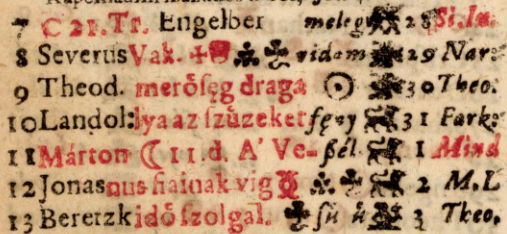 7 C 21. Tr. Engelber meleg 28 Si. Iu.
8 Severus Vak. vidam 29 Nar:
9 Theod. merőſęg draga ☉ 30 Theo.
10 Landol: lya az ſzüzeket fęny 31 Fark:
11 Márton ☾ 11. d. A' Ve- ßél 1 Mind
12 Jonas nus fiainak vig 2 M. L
13 Beretzk idő ſzolgal. ſü ü 3 Theo.